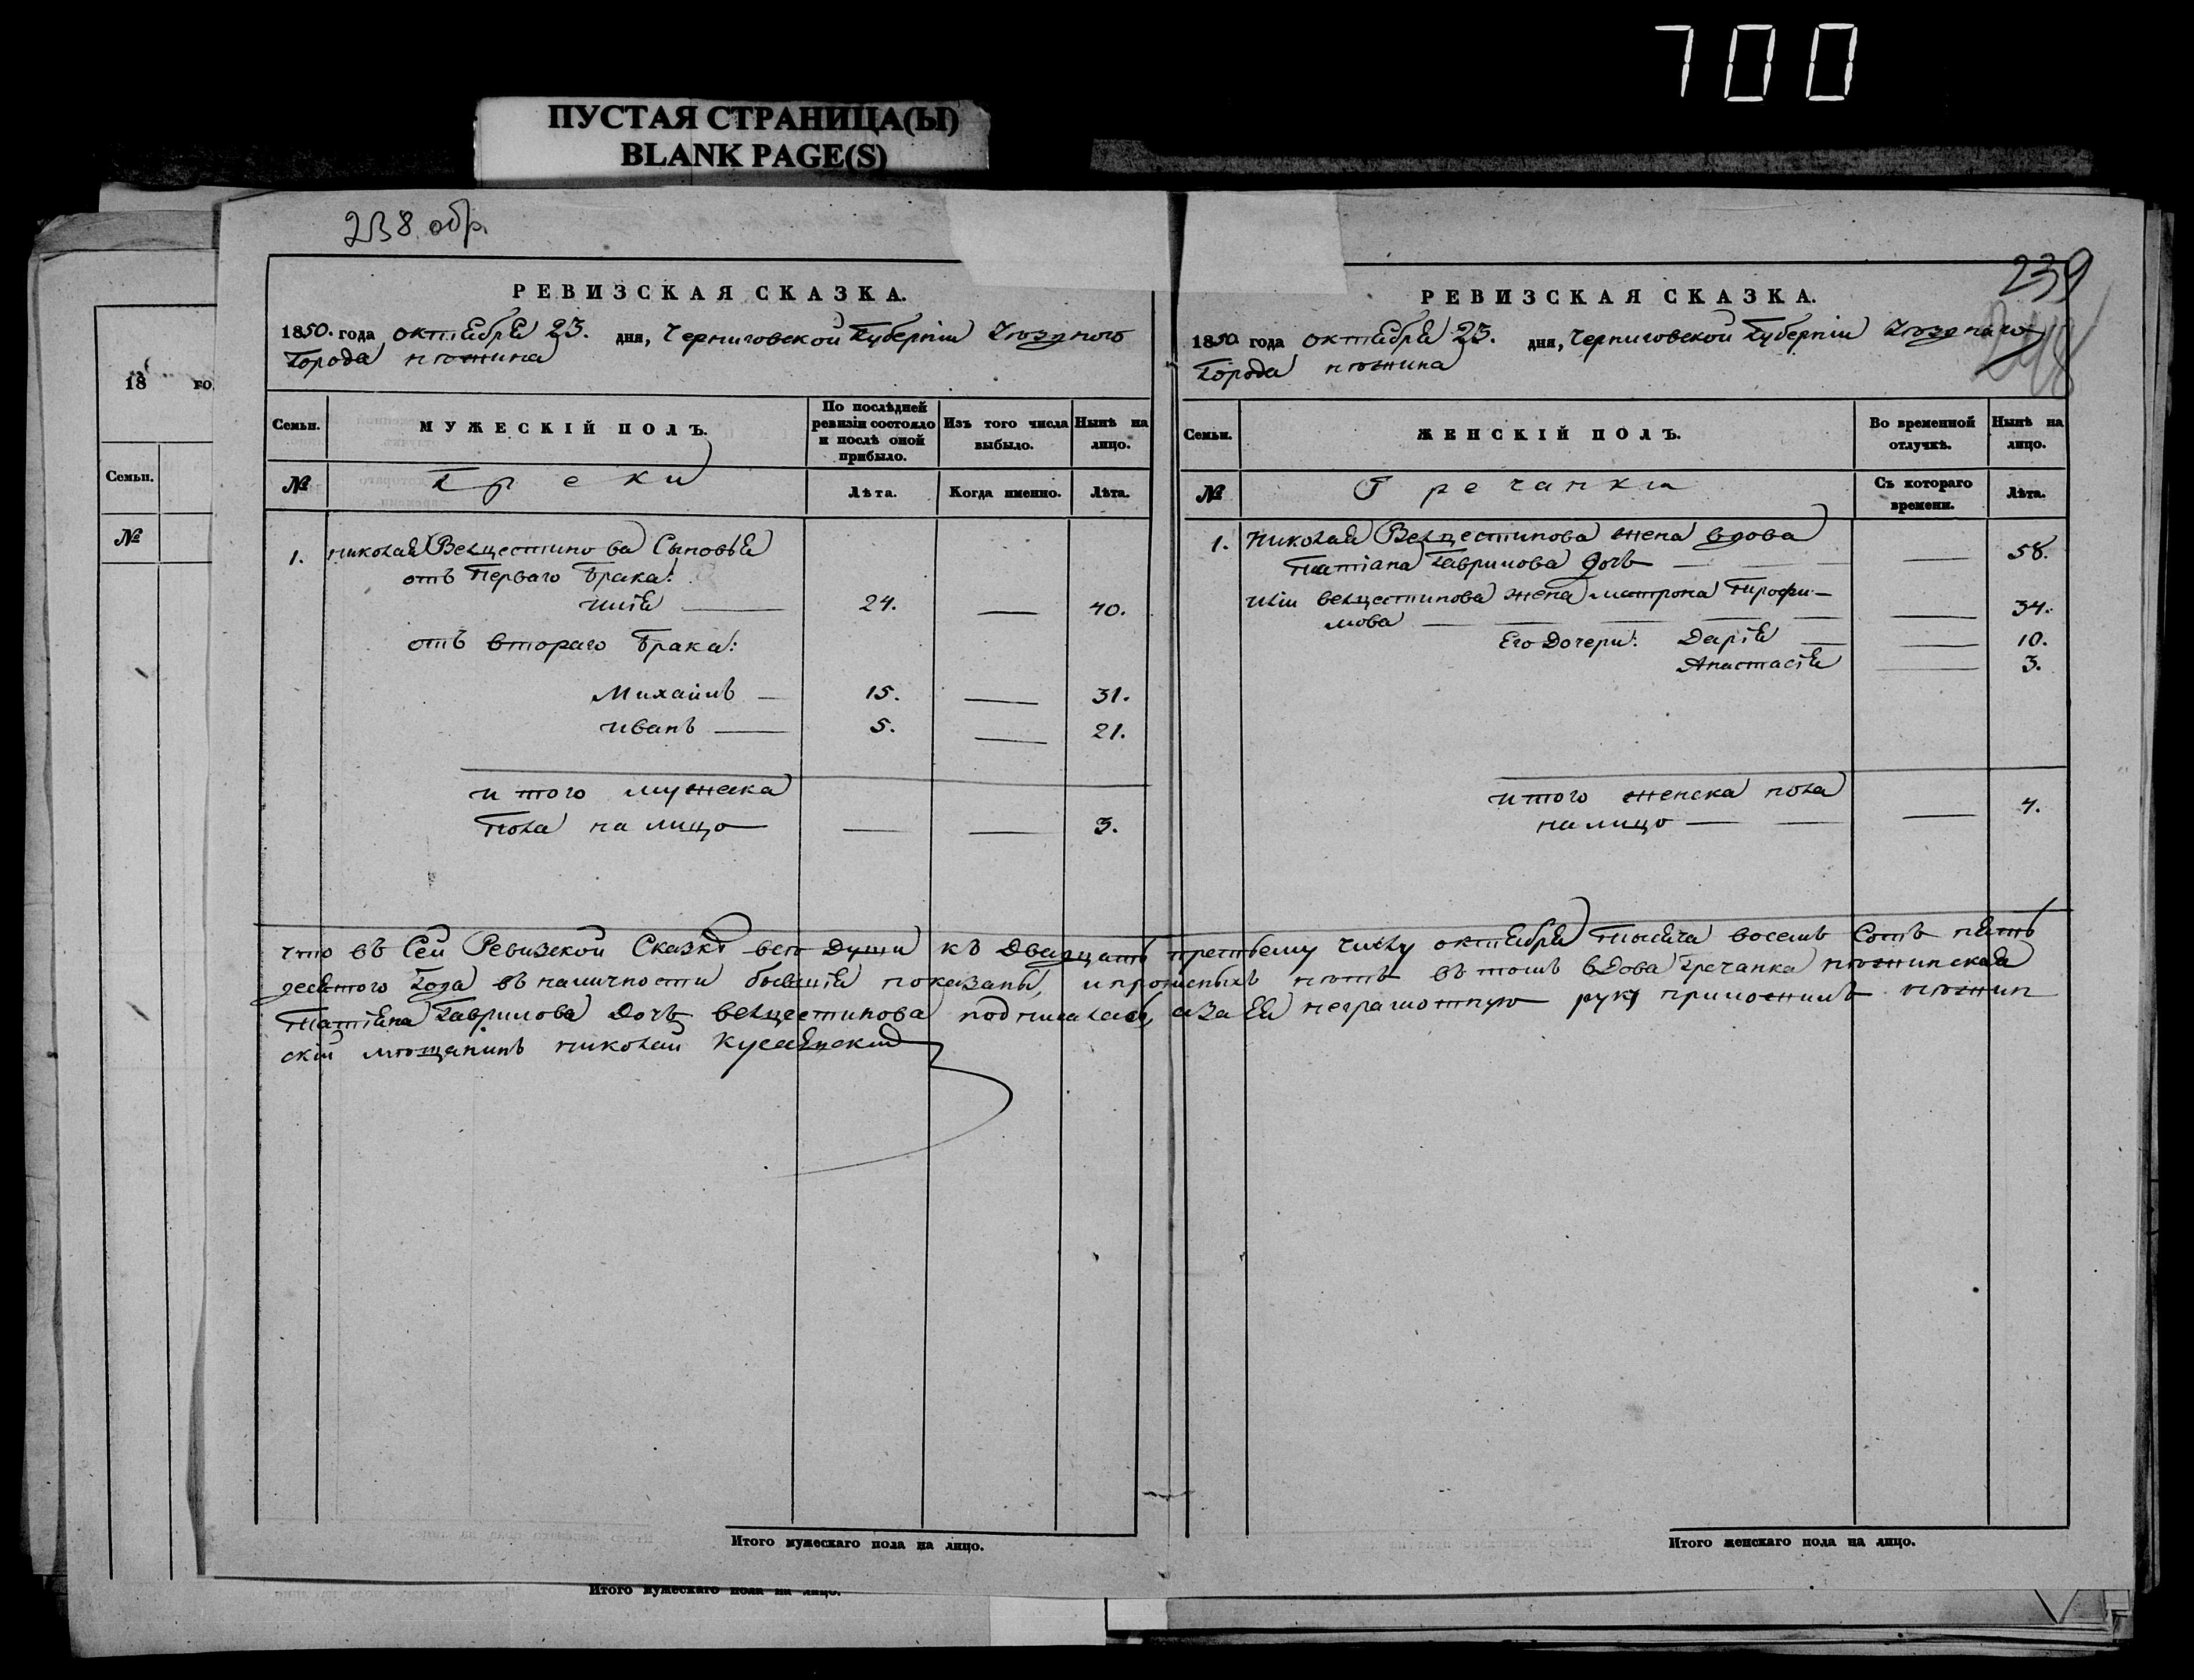 700
ПУСТАЯ СТРАНИЦА(Ы)
BLANK PAGE(S)
238 обр.
РЕВИЗСКАЯ СКАЗКА.
1850. года октября 23. дня, Черниговской Губерніи Уѣзднаго
Города нѣжина
Семьи.
МУЖЕСКІЙ ПОЛЪ.
По послѣдней ревизіи состояло и послѣ оной прибыло.
Изъ того числа выбыло.
Нынѣ на лицо.
№
Греки
Лѣта.
Когда именно.
Лѣта.
1. николая Велцестинова Сыновья
отъ Перваго брака:
илія — 24. — 40.
отъ втораго брака:
Михаилъ — 15. — 31.
иванъ — 5. — 21.
и того мужеска
пола на лицо — — 3.
239
РЕВИЗСКАЯ СКАЗКА.
1850 года октября 23. дня, Черниговской Губерніи Уѣзднаго
Города нѣжина
Семьи.
ЖЕНСКІЙ ПОЛЪ.
Во временной отлучкѣ.
Нынѣ на лицо.
№
Гречанки
Съ котораго времени.
Лѣта.
1. Николая Велцестинова жена вдова
Татіана Гаврилова дочь — — 58.
иліи велцестинова жена матрона Трофи-
мова — — 34.
Его Дочери: Дарія — — 10.
Анастасія — 3.
итого женска пола
на лицо — — 4.
что въ Сей Ревизской Сказкѣ всѣ Души къ Двадцать третьему числу октября тысяча восемь Сотъ пять
десятого Года въ наличности бывшія показаны, и прописныхъ нѣтъ въ томъ вдова Гречанка нѣжинская
Татіяна Гаврилова Дочь велцестинова подписалась, а за Ея неграмотную руку приложилъ нѣжин
скій мѣщанинъ николай
18 го
Семьи.
№
Итого мужескаго пола на лицо.
Итого женскаго пола на лицо.
Итого мужескаго пола на лицо.